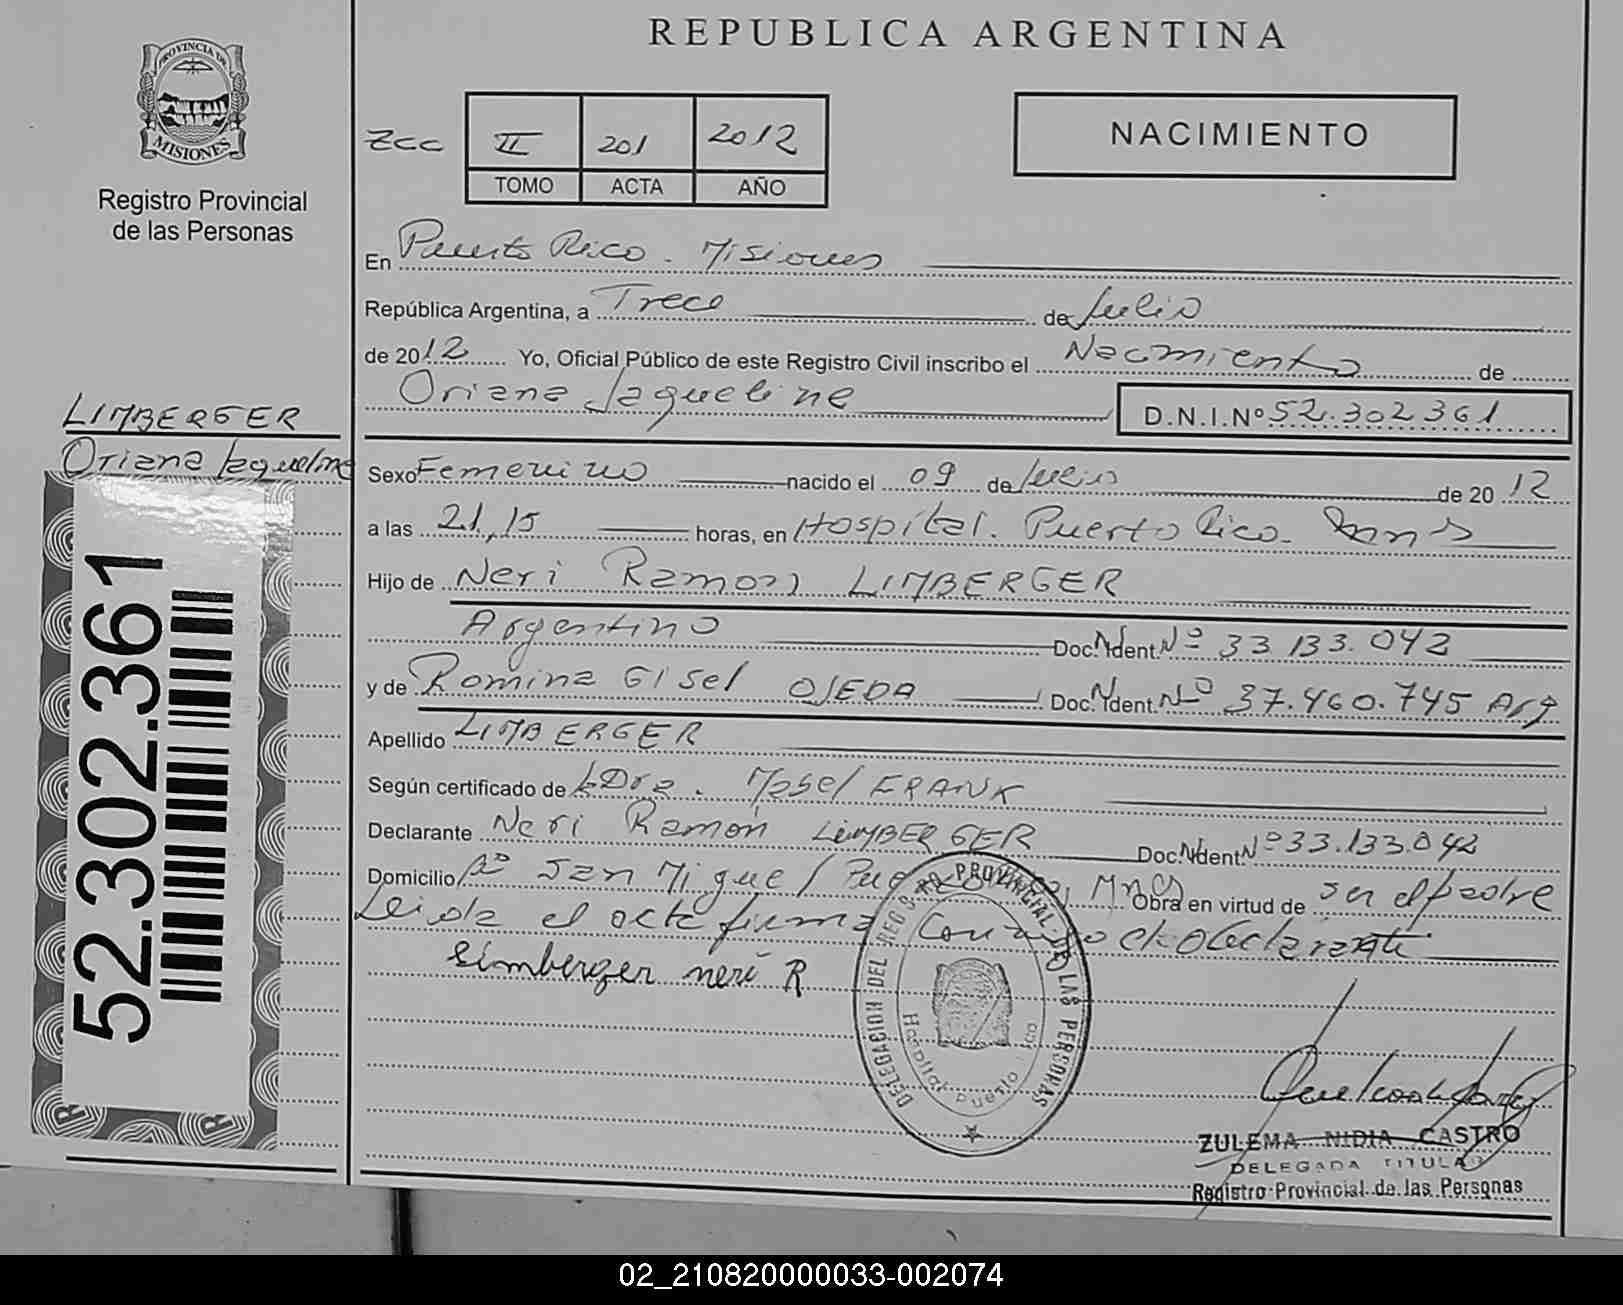 REPUBLICA ARGENTINA
PROVINCIA DE
MISIONES
Registro Provincial
de las Personas
Zcc II 201 2012
TOMO ACTA AÑO
NACIMIENTO
En Puerto Rico. Misiones
República Argentina, a Trece de Julio
de 2012 Yo, Oficial Público de este Registro Civil inscribo el Nacimiento de
Oriana Jaqueline D.N.I.Nº 52.302361
LIMBERGER
Oriana Jaqueline
52.302.361
Sexo Femenino nacido el 09 de Julio de 2012
a las 21,15 horas, en Hospital. Puerto Rico.
Hijo de Neri Ramon LIMBERGER
Argentino Doc. Ident. Nº 33.133.042
y de Romina Gisel OJEDA Doc. Ident. Nº 37.460.745 Arg
Apellido LIMBERGER
Según certificado de Dra. Mabel FRANK
Declarante Neri Ramón LIMBERGER Doc. Ident Nº 33.133.042
Domicilio Bº San Miguel Obra en virtud de ser el padre
Leida el acta firma declarante
Limberger neri R
DELEGACION DEL REGISTRO PROVINCIAL DE LAS PERSONAS
Hospital Puerto Rico
ZULEMA NIDIA CASTRO
DELEGADA TITULAR
Registro Provincial de las Personas
02_210820000033-002074